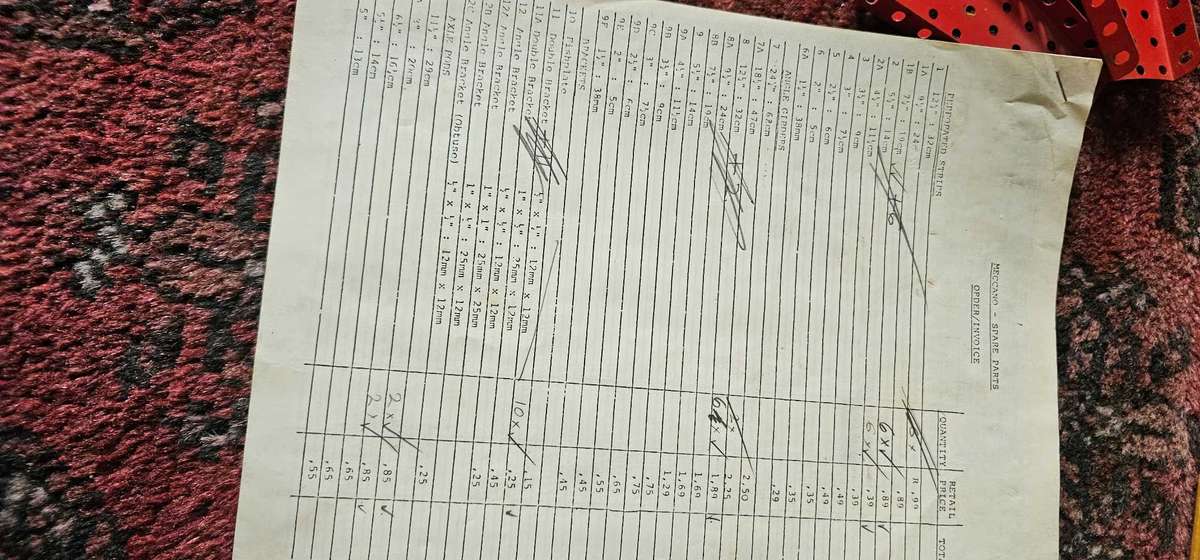 MECCANO - SPARE PARTS
ORDER/INVOICE
PERFORATED STRIPS
1 12½" : 32cm
1A 9½" : 24
1B 7½" : 19cm
2 5½" : 14cm
2A 4½" : 11½cm
3 3½" : 9cm
4 3" : 7½cm
5 2½" : 6cm
6 2" : 5cm
6A 1½" : 38mm
ANGLE GIRDERS
7 24½" : 62cm
7A 18½" : 47cm
8 12½" : 32cm
8A 9½" : 24cm
8B 7½" : 19cm
9 5½" : 14cm
9A 4½" : 11½cm
9B 3½" : 9cm
9C 3" : 7½cm
9D 2½" : 6cm
9E 2" : 5cm
9F 1½" : 38mm
BRACKETS
10 Fishplate
11 Double Bracket ½" x ½" : 12mm x 12mm
11A Double Bracket 1" x ½" : 25mm x 12mm
12 Angle Bracket ½" x ½" : 12mm x 12mm
12A Angle Bracket 1" x 1" : 25mm x 25mm
Angle Bracket 1" x ½" : 25mm x 12mm
Angle Bracket (Obtuse) ½" x ½" : 12mm x 12mm
AXLE RODS
11½" : 29cm
8" : 20cm
6½" : 16½cm
5½" : 14cm
5" : 13cm
QUANTITY
6 x ✓
6 x ✓
6 x ✓
10 x ✓
2 x ✓
2 x ✓
RETAIL PRICE
R ,99
,89
,89 ✓
,39 ✓
,39
,49
,49
,35
,35
,29
2,50
2,25
1,89
1,69
1,69
1,29
,75
,75
,65
,55
,45
,45
,15
,25 ✓
,45
,25
,25
,85 ✓
,85 ✓
,65
,65
,55
TOT